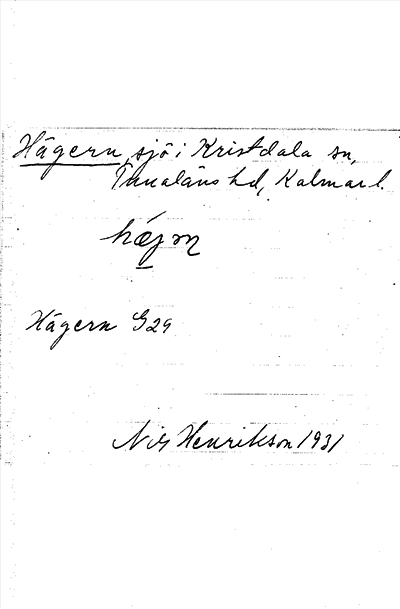 Hägern, sjö i Kristdala sn,
Tunaläns hd, Kalmar l.
hǽjɳ
Hägern G29
Nils Henrikson 1931